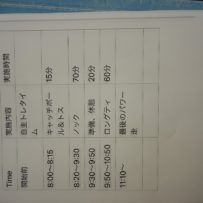 Time 実施内容 実施時間
開始前 自主トレタイム
8:00〜8:15 キャッチボール&トス 15分
8:20〜9:30 ノック 70分
9:30〜9:50 準備、休憩 20分
9:50〜10:50 ロングティ 60分
11:10〜 最後のパワー走